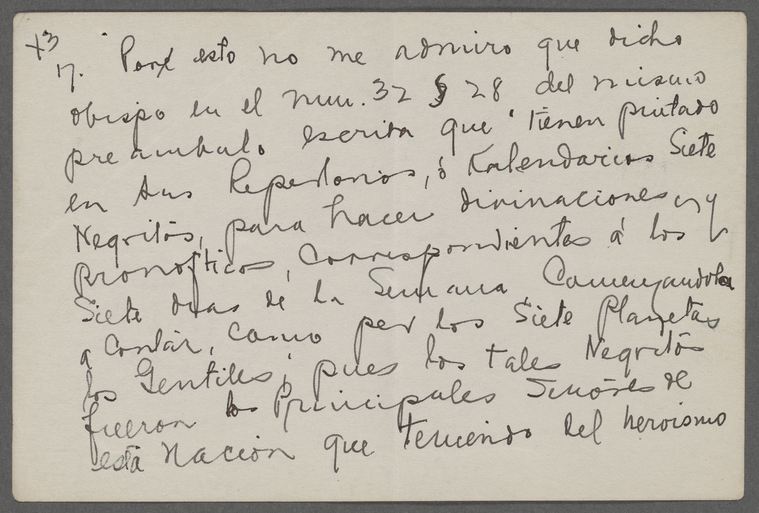 x3
17. Por esto no me admiro que dicho
obispo en el num. 32 § 28 del mismo
preambulo escriva que "tienen pintado
en sus Repertorios, ó Kalendarios Siete
Negritos, para hacer divinaciones, y
pronosticos, correspondientes á los
Siete dias de la Semana Comenzandola
a Contar, como por los Siete Planetas
los Gentiles; pues los tales Negritos
fueron los Principales Señores de
esta Nacion que teniendo del heroismo